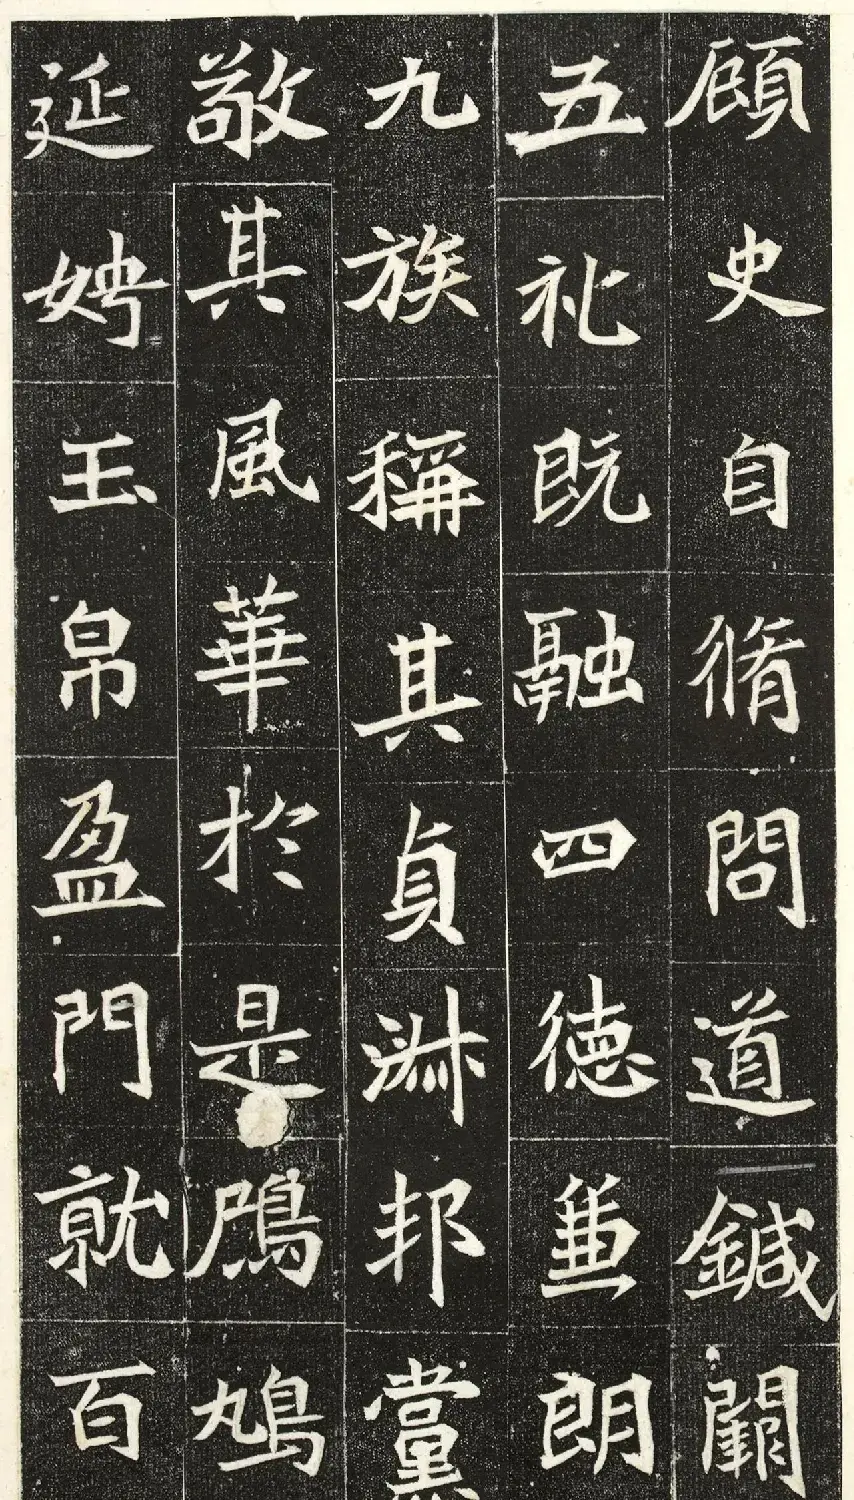 顧史自脩問道鍼闚
五礼既融四德兼朗
九族稱其貞淑邦黨
敬其風華於是鴈鳩
延娉玉帛盈門就百